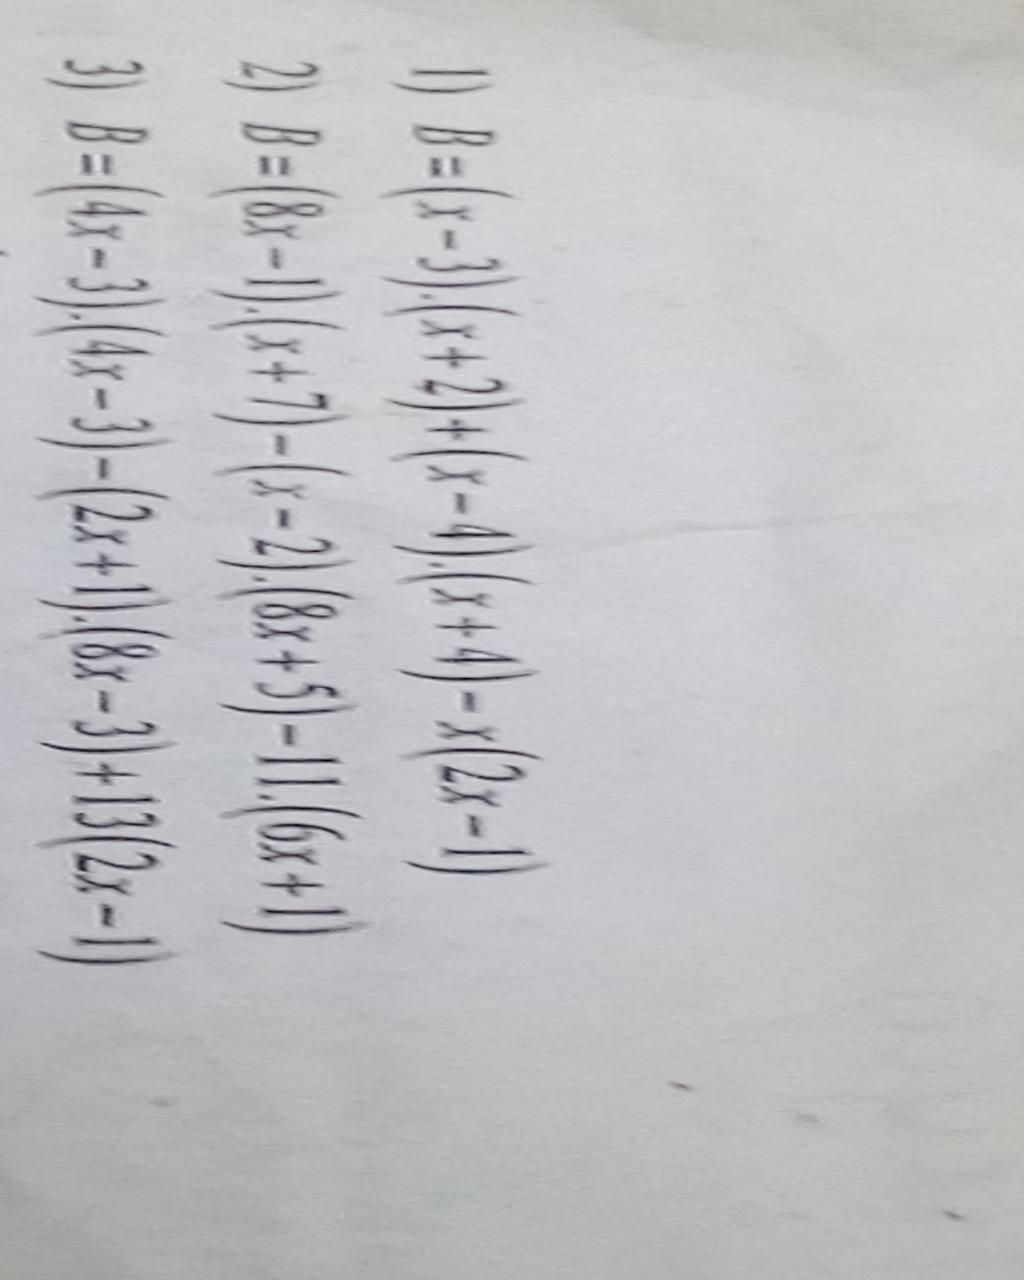 1) B=(x-3).(x+2)+(x-4).(x+4)-x(2x-1)
2) B=(8x-1).(x+7)-(x-2).(8x+5)-11.(6x+1)
3) B=(4x-3).(4x-3)-(2x+1).(8x-3)+13(2x-1)